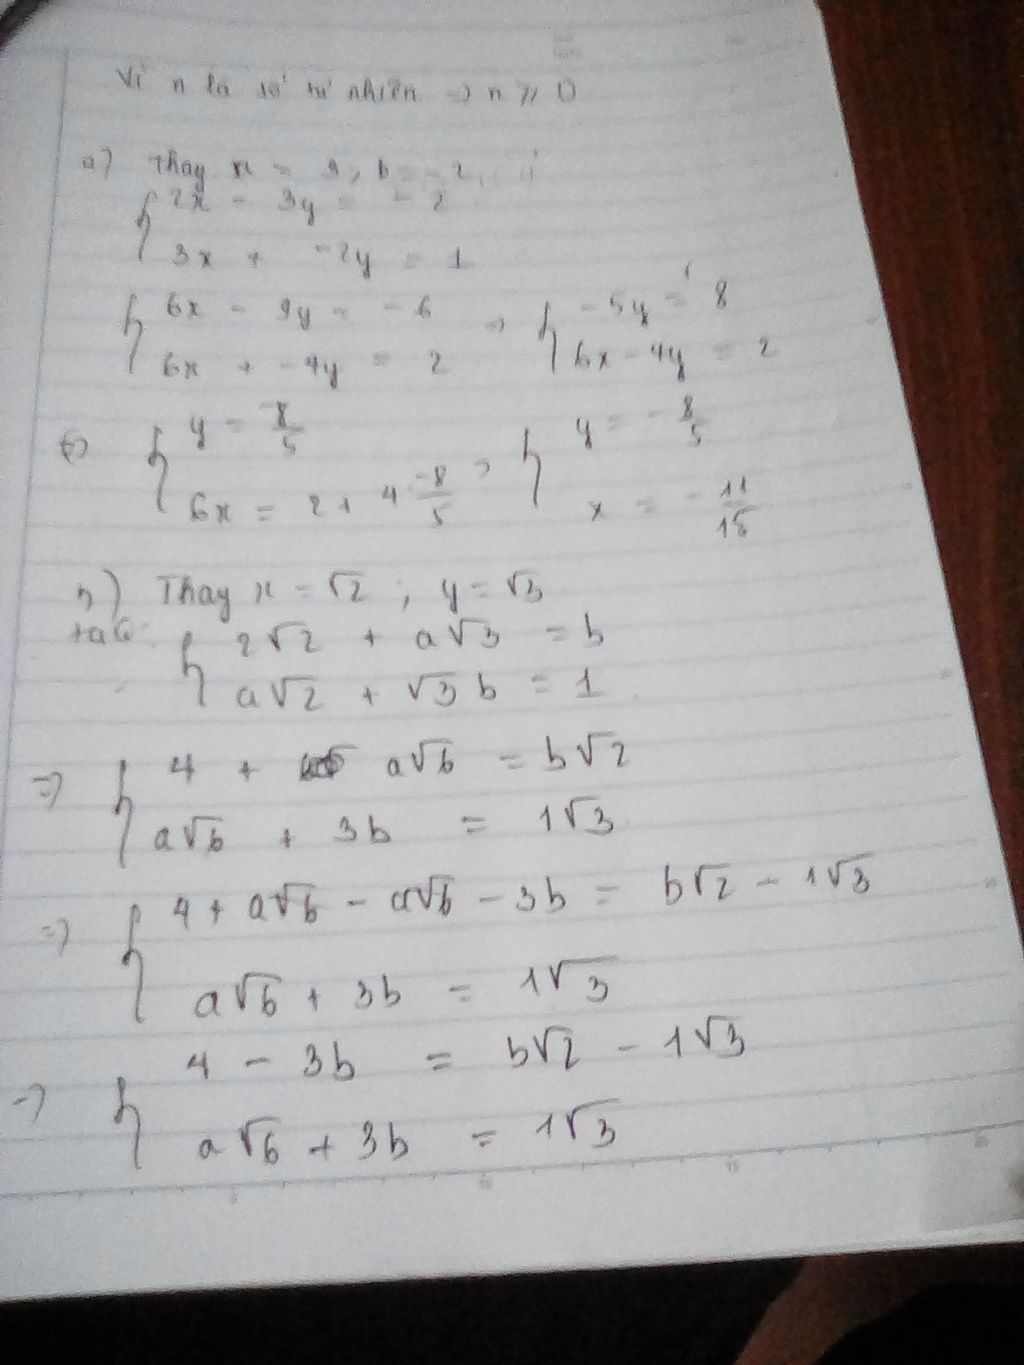 Vì n là số tự nhiên => n ≥ 0
a) Thay x = 3, b = -2,
{ 2x - 3y = -2
3x + -2y = 1
{ 6x - 9y = -6 => { -5y = 8
6x + -4y = 2 6x - 4y = 2
{ y = -8/5 => { y = -8/5
6x = 2 + 4 -8/5 x = -11/15
b) Thay x = √2 ; y = √3
{ 2√2 + a√3 = b
a√2 + √3 b = 1
=> { 4 + a√6 = b√2
a√6 + 3b = 1√3
=> { 4 + a√6 - a√6 - 3b = b√2 - 1√3
a√6 + 3b = 1√3
=> { 4 - 3b = b√2 - 1√3
a√6 + 3b = 1√3